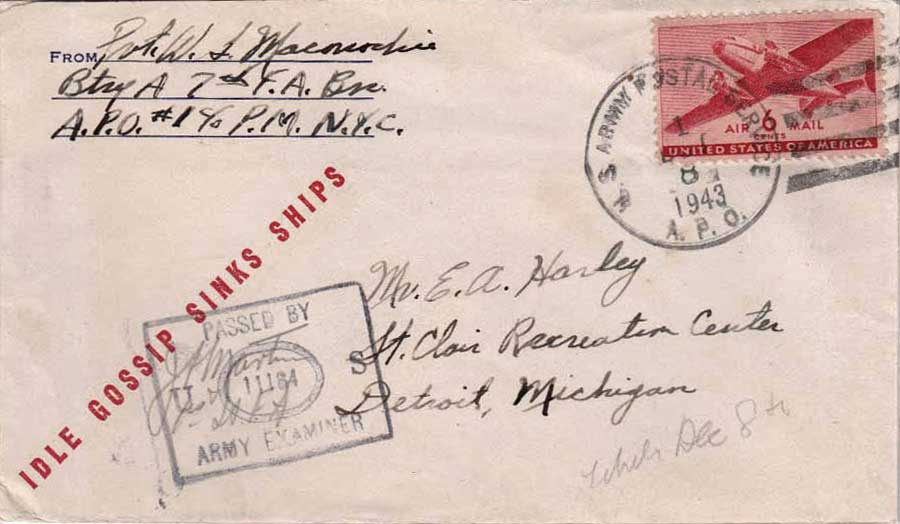 FROM Pvt. W. L. Maconochie
Btry A 7th F.A. Bn.
A.P.O. #1 c/o P.M. N.Y.C.
U S ARMY POSTAL SERVICE
1
8
1943
A. P. O.
AIR 6 MAIL
CENTS
UNITED STATES OF AMERICA
IDLE GOSSIP SINKS SHIPS
PASSED BY
11184
S
ARMY EXAMINER
Mr. E. A. Harley
St. Clair Recreation Center
Detroit, Michigan
Dec 8th